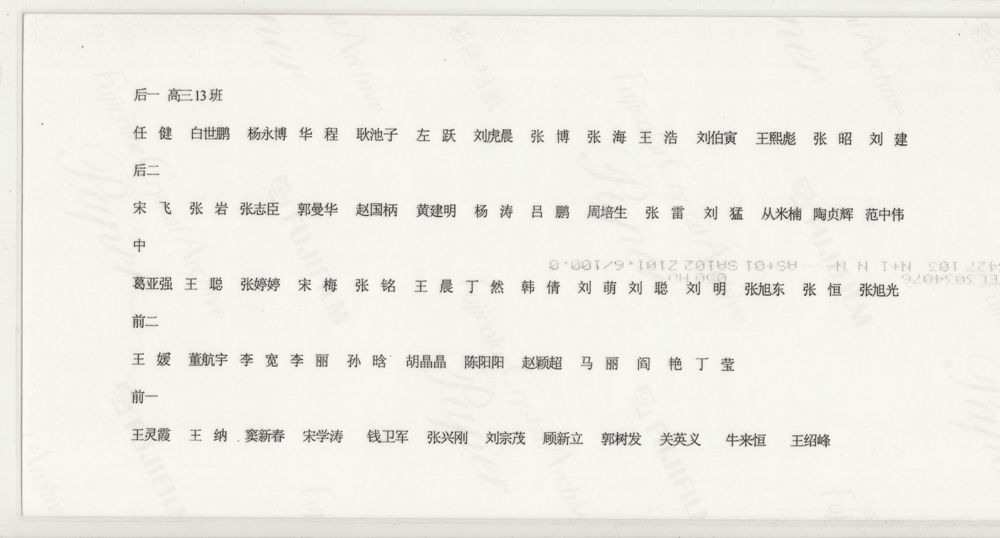 后一 高三13班
任 健 白世鹏 杨永博 华 程 耿池子 左 跃 刘虎晨 张 博 张 海 王 浩 刘伯寅 王熙彪 张 昭 刘 建
后二
宋 飞 张 岩 张志臣 郭曼华 赵国柄 黄建明 杨 涛 吕 鹏 周培生 张 雷 刘 猛 从米楠 陶贞辉 范中伟
中
葛亚强 王 聪 张婷婷 宋 梅 张 铭 王 晨 丁 然 韩 倩 刘 萌 刘 聪 刘 明 张旭东 张 恒 张旭光
前二
王 媛 董航宇 李 宽 李 丽 孙 晗 胡晶晶 陈阳阳 赵颖超 马 丽 阎 艳 丁 莹
前一
王灵霞 王 纳 窦新春 宋学涛 钱卫军 张兴刚 刘宗茂 顾新立 郭树发 关英义 牛来恒 王绍峰